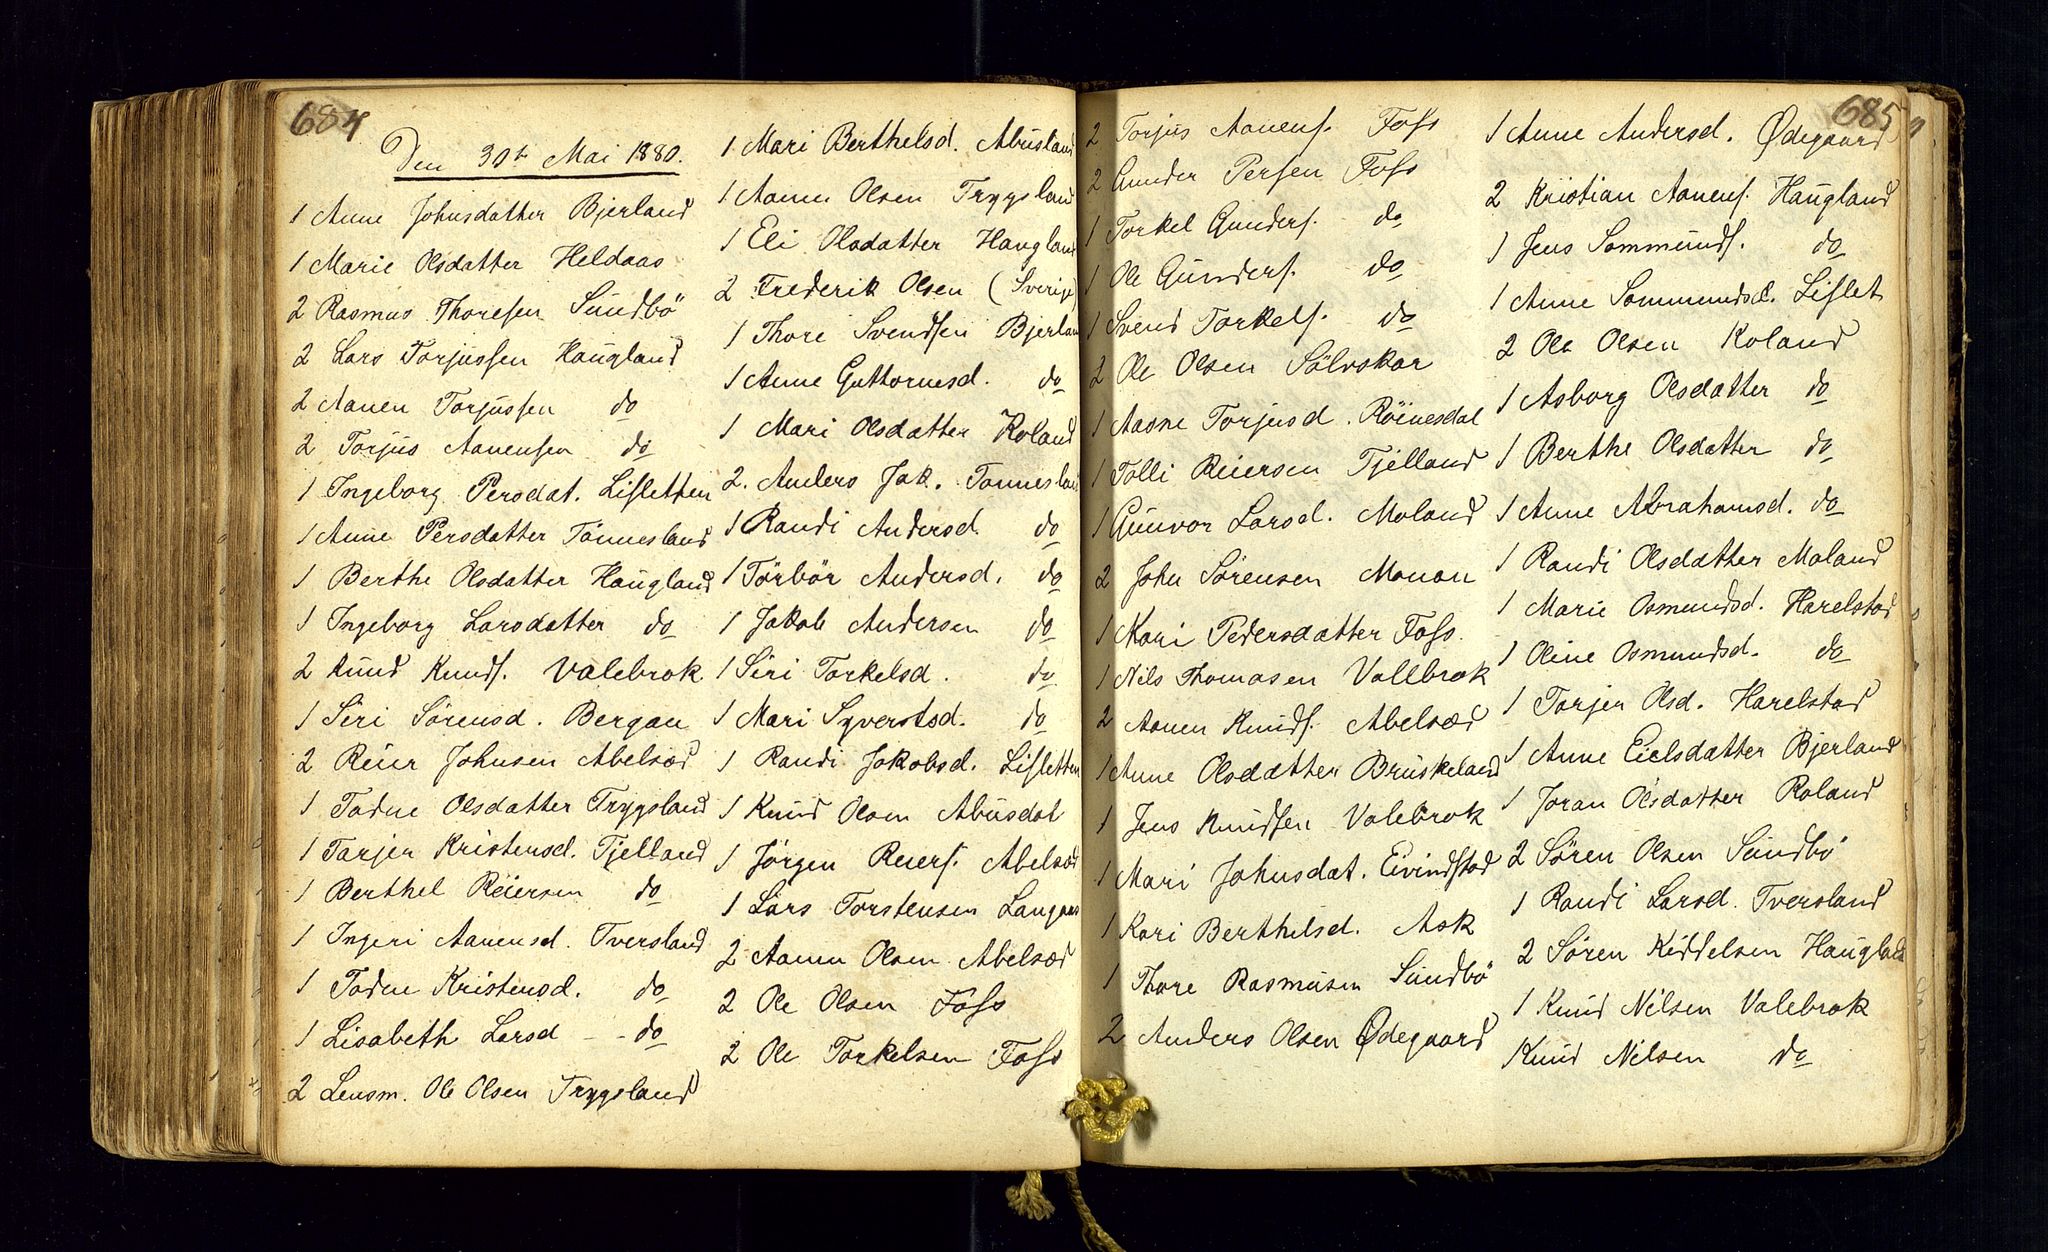 684
Den 30te Mai 1880.
1 Anne Johnsdatter Bjerland
1 Marie Olsdatter Heldaas
2 Rasmus Thoresen Sundbö
2 Lars Torjussen Haugland
2 Aanen Torjussen do
2 Torjus Aanensen do
1 Ingeborg Persdat. Lisletten
1 Anne Persdatter Tönnesland
1 Berthe Olsdatter Haugland
1 Ingeborg Larsdatter do
2 Knud Knuds. Valebrok
1 Siri Sörensd. Bergan
2 Reier Johnsen Abelsæd
1 Tadne Olsdatter Trygsland
1 Tarjer Kristensd. Tjelland
1 Berthel Reiersen do
1 Ingeri Aanensd. Tversland
1 Tadne Kristensd. do
1 Lisabeth Larsd - - do
2 Lensm. Ole Olsen Trygsland
1 Mari Berthelsd. Abusland
1 Aanen Olsen Trygsland
1 Eli Olsdatter Haugland
2 Frederik Olsen (Sverige)
1 Thore Svendsen Bjerland
1 Anne Guttormsd. do
1 Mari Olsdatter Roland
2. Anders Jak. Tönnesland
1 Randi Andersd. do
1 Törbör Andersd. do
1 Jakob Andersen do
1 Siri Torkelsd. do
1 Mari Syvertsd. do
1 Randi Jakobsd. Lisletten
1 Knud Olsen Abusdal
1 Jörgen Reiers. Abelsæd
1 Lars Torstensen Langaas
2 Aanen Olsen Abelsæd
2 Ole Olsen Foss
2 Ole Torkelsen Foss
685
2 Torjus Aanens. Foss
2 Gunder Persen Foss
1 Torkel Gunders. do
1 Ole Gunders. do
1 Svend Torkels. do
2 Ole Olsen Sölvskar
1 Aasne Torjusd. Röinesdal
1 Tolli Reiersen Tjelland
1 Gunvor Larsd. Moland
2 John Sörensen Monan
1 Kari Pedersdatter Foss.
1 Nils Thomasen Vallbrok
2 Aanen Knuds. Abelsæd
1 Anne Olsdatter Bruskeland
1 Jens Knudsen Valebrok
1 Mari Johnsdat. Eivindstad
1 Kari Berthelsd. Ask
1 Thore Rasmusen Sundbö
2 Anders Olsen Ødegaard
1 Anne Andersd. Ødegaard
2 Kristian Aanens. Haugland
1 Jens Sommunds. do
1 Anne Sommundsd. Lislet
2 Ole Olsen Roland
1 Asborg Olsdatter do
1 Berthe Olsdatter do
1 Anne Abrahamsd. do
1 Randi Olsdatter Moland
1 Marie Osmundsd. Harelstad
1 Oline Osmundsd. do
1 Tarjer Olsd. Harelstad
1 Anne Eielsdatter Bjerland
1 Joran Olsdatter Roland
2 Sören Olsen Sundbö
1 Randi Larsd. Tversland
2 Sören Kiddelsen Haugland
1 Knud Nilsen Valebrok
Knud Nilsen do